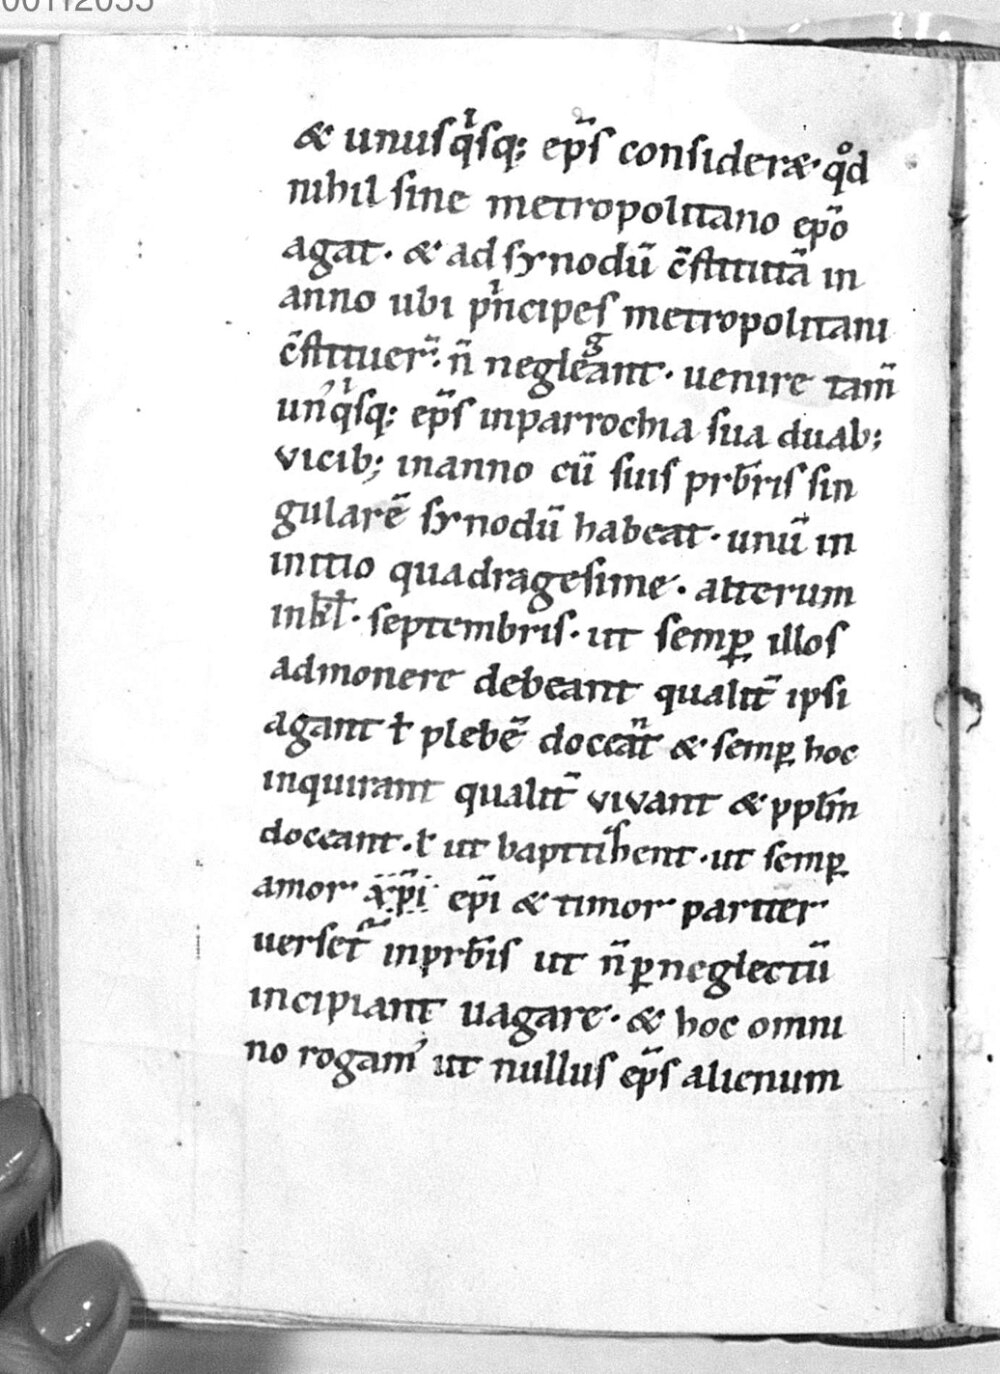 & unusq̍sq; ep̄s consideræ· qͦd
nihil sine metropolitano ep̄o
agat· & ad synodū c̄stitutā in
anno ubi pͥncipes metropolitani
c̄stituer̄· n̄ neglegant· uenire tam̄
un᾽qͥsq; ep̄s inparrochia sua duab;
vicib; inanno cū suis prb̄ris sin
gularē synodū habeat· unū in
initio quadragesime· alterum
inkl̄· septembris· ut semꝑ illos
admonere debeant qualit̄ ipsi
agant ł plebē doceant & semꝑ hoc
inquirant qualit̄ vivant & pplm̄
doceant· ł ut baptizent· ut semꝑ
amor x̄p̄i ep̄i & timor pariter
uerset᷑ inprb̄is ut n̄ ꝑ neglectū
incipiant uagare· & hoc omni
no rogam᾽ ut nullus ep̄s alienum